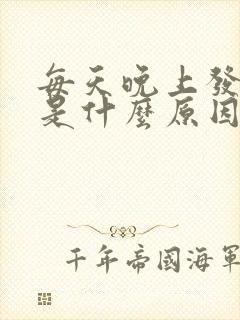 每天晚上發
是什麼原因
千年帝國海軍